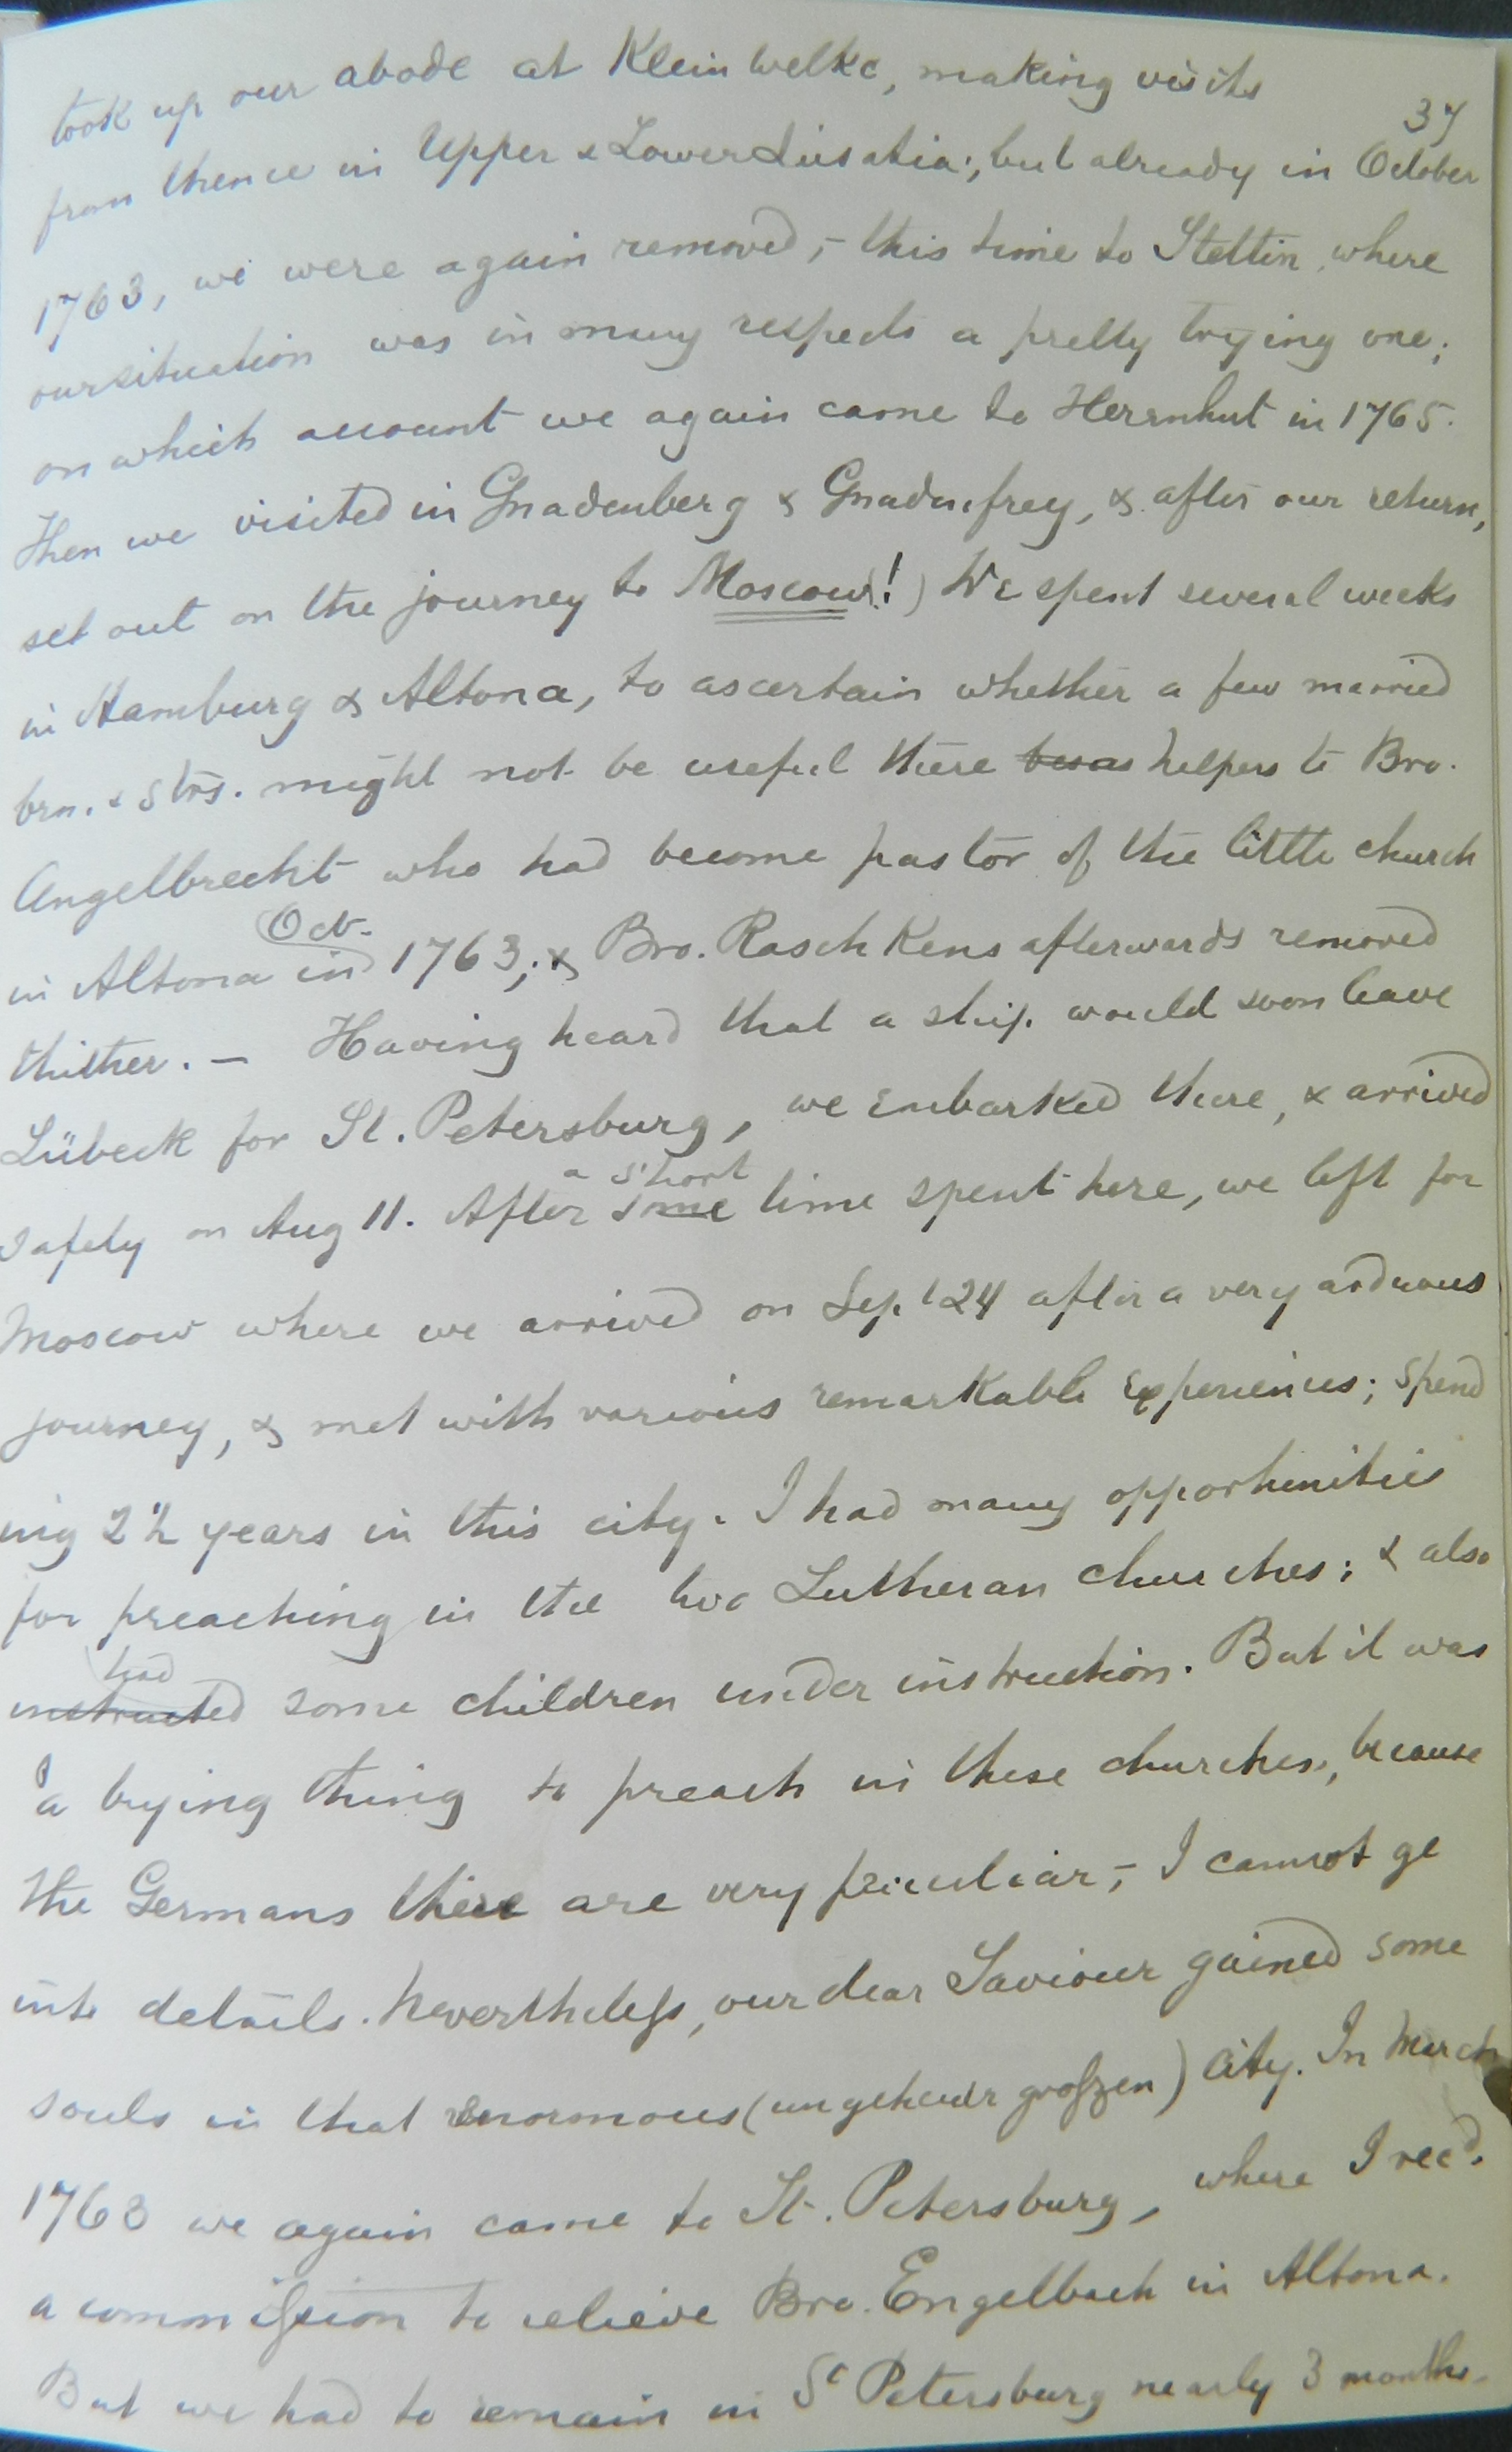 37
took up our abode at Klein Welke, making visits
from thence in Upper & Lower Lusatia; but already in October
1763, we were again removed, - this time to Stettin, where
our situation was in many respects a pretty trying one;
on which account we again came to Herrnhut in 1765.
Then we visited in Gnadenberg & Gnadenfrey, & after our return,
set out on the journey to Moscow(!) We spent several weeks
in Hamburg & Altona, to ascertain whether a few married
brn. & strs. might not be useful there as helpers to Bro.
Angelbrecht who had become pastor of the little church
in Altona in Oct. 1763; & Bro. Raschkens afterwards removed
thither. – Having heard that a ship would soon leave
Lübeck for St. Petersburg, we embarked there, & arrived
safely on Aug 11. After a short some time spent here, we left for
Moscow where we arrived on Sept 24 after a very arduous
journey, & met with various remarkable experiences; spend
ing 2½ years in this city. I had many opportunities
for preaching in the two Lutheran churches; & also
had instructed some children under instruction. But it was
a trying thing to preach in these churches, because
the Germans there are very peculiar, - I cannot ge
into details. Nevertheless, our dear Saviour gained some
souls in that enormous (ungeheuer groszen) city. In March
1768 we again came to St. Petersburg, where I recd.
a commission to relieve Bro. Engelbach in Altona.
But we had to remain in St Petersburg nearly 3 months.